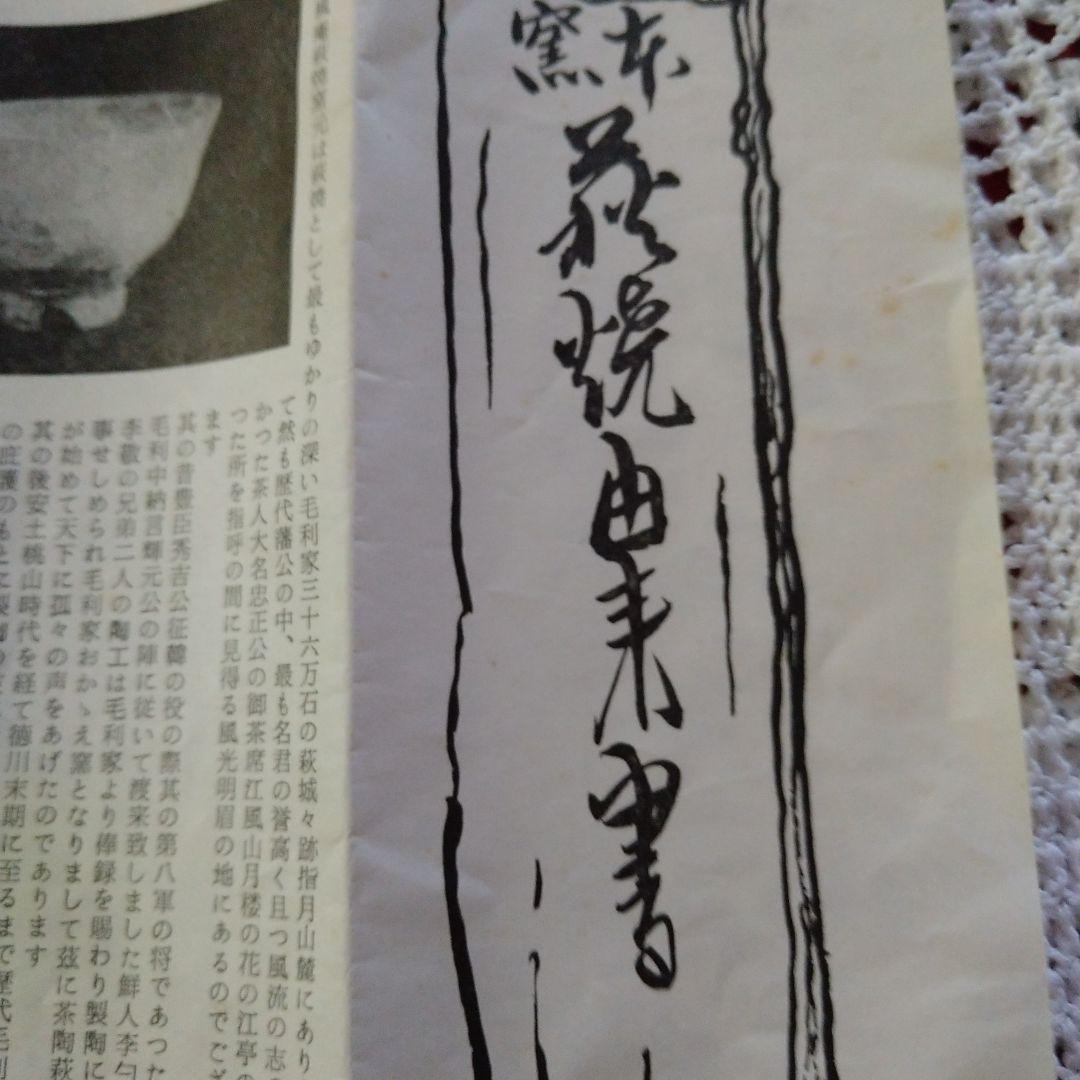 本窯
萩焼由来書
萩焼窯元は萩焼として最もゆかりの深い毛利家三十六万石の萩城々跡指月山麓にあり
て然も歴代藩公の中、最も名君の誉高く且つ風流の志
かつた茶人大名忠正公の御茶席江風山月楼の花の江亭の
つた所を指呼の間に見得る風光明眉の地にあるのでござ
ます
其の昔豊臣秀吉公征韓の役の際其の第八軍の将であつた
毛利中納言輝元公の陣に従いて渡来致しました鮮人李勺
李敬の兄弟二人の陶工は毛利家より俸録を賜わり製陶に
事せしめられ毛利家おかゝえ窯となりまして茲に茶陶萩
が始めて天下に孤々の声をあげたのであります
其の後安土桃山時代を経て徳川末期に至るまで歴代毛利
の庇護のもとに